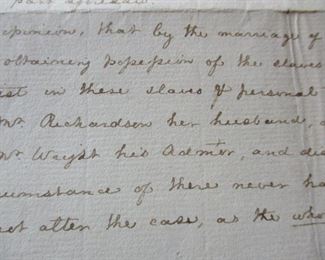 opinion, that by the marriage of
obtaining possession of the slaves
est in these slaves & personal
Mr. Richardson her husband,
Mr Wright his Admr, and dis
cumstance of there never ha
not alter the case, as the who